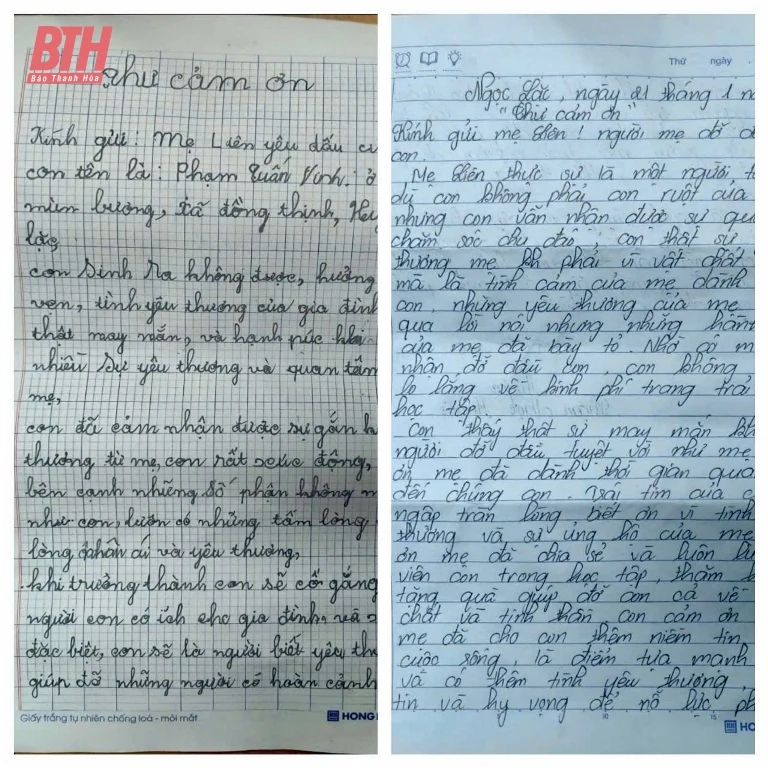 BTH
Báo Thanh Hóa
Thư cảm ơn
Kính gửi: Mẹ Liên yêu dấu c
con tên là: Phạm Tuấn Vinh. ở
mùn bương, xã đồng thịnh, Huy
lặc,
con sinh ra không được, hưởng
vẹn, tình yêu thương của gia đình
thật may mắn, và hạnh púc khi
nhiều sự yêu thương và quan tâm
mẹ,
con đã cảm nhận được sự gắn k
thương từ mẹ, con rất xúc động,
bên cạnh những số phận không m
như con, luôn có những tấm lòng
lòng nhân ái và yêu thương,
khi trưởng thành con sẽ cố gắng
người con có ích cho gia đình, và
đặc biệt, con sẽ là người biết yêu th
giúp đỡ những người có hoàn cảnh
Giấy trắng tự nhiên chống loá - mỏi mắt
HONG
Thứ ngày
Ngọc Lặc, ngày 21 tháng 1 n
"Thư cảm ơn"
Kính gửi mẹ Liên! người mẹ đỡ đ
con.
Mẹ Liên thực sự là một người, t
dù con không phải con ruột của
nhưng con vẫn nhận được sự qua
chăm sóc chu đáo, con thật sự
thương mẹ kh phải vì vật chất
mà là, tình cảm của mẹ dành
con, những yêu thương của mẹ
qua lời nói nhưng những hành
của mẹ đã bày tỏ. Nhờ có m
nhận đỡ đầu con, con không
lo lắng về kinh phí trang trải
học tập.
Con thấy thật sự may mắn kh
người đỡ đầu, tuyệt vời như mẹ
ơn mẹ đã dành thời gian qua
đến chúng con. Trái tim của c
ngập tràn lòng biết ơn vì tình
thương và sự ủng hộ của mẹ
ơn mẹ đã chia sẻ và luôn
viên con trong học tập, thăm
tặng quà giúp đỡ con cả về
chất và tinh thần con cảm ơn
mẹ đã cho con thêm niềm tin
cuộc sống, là điểm tựa mạnh
và có thêm tình yêu thương,
tin và hy vọng để nỗ lực ph
HO